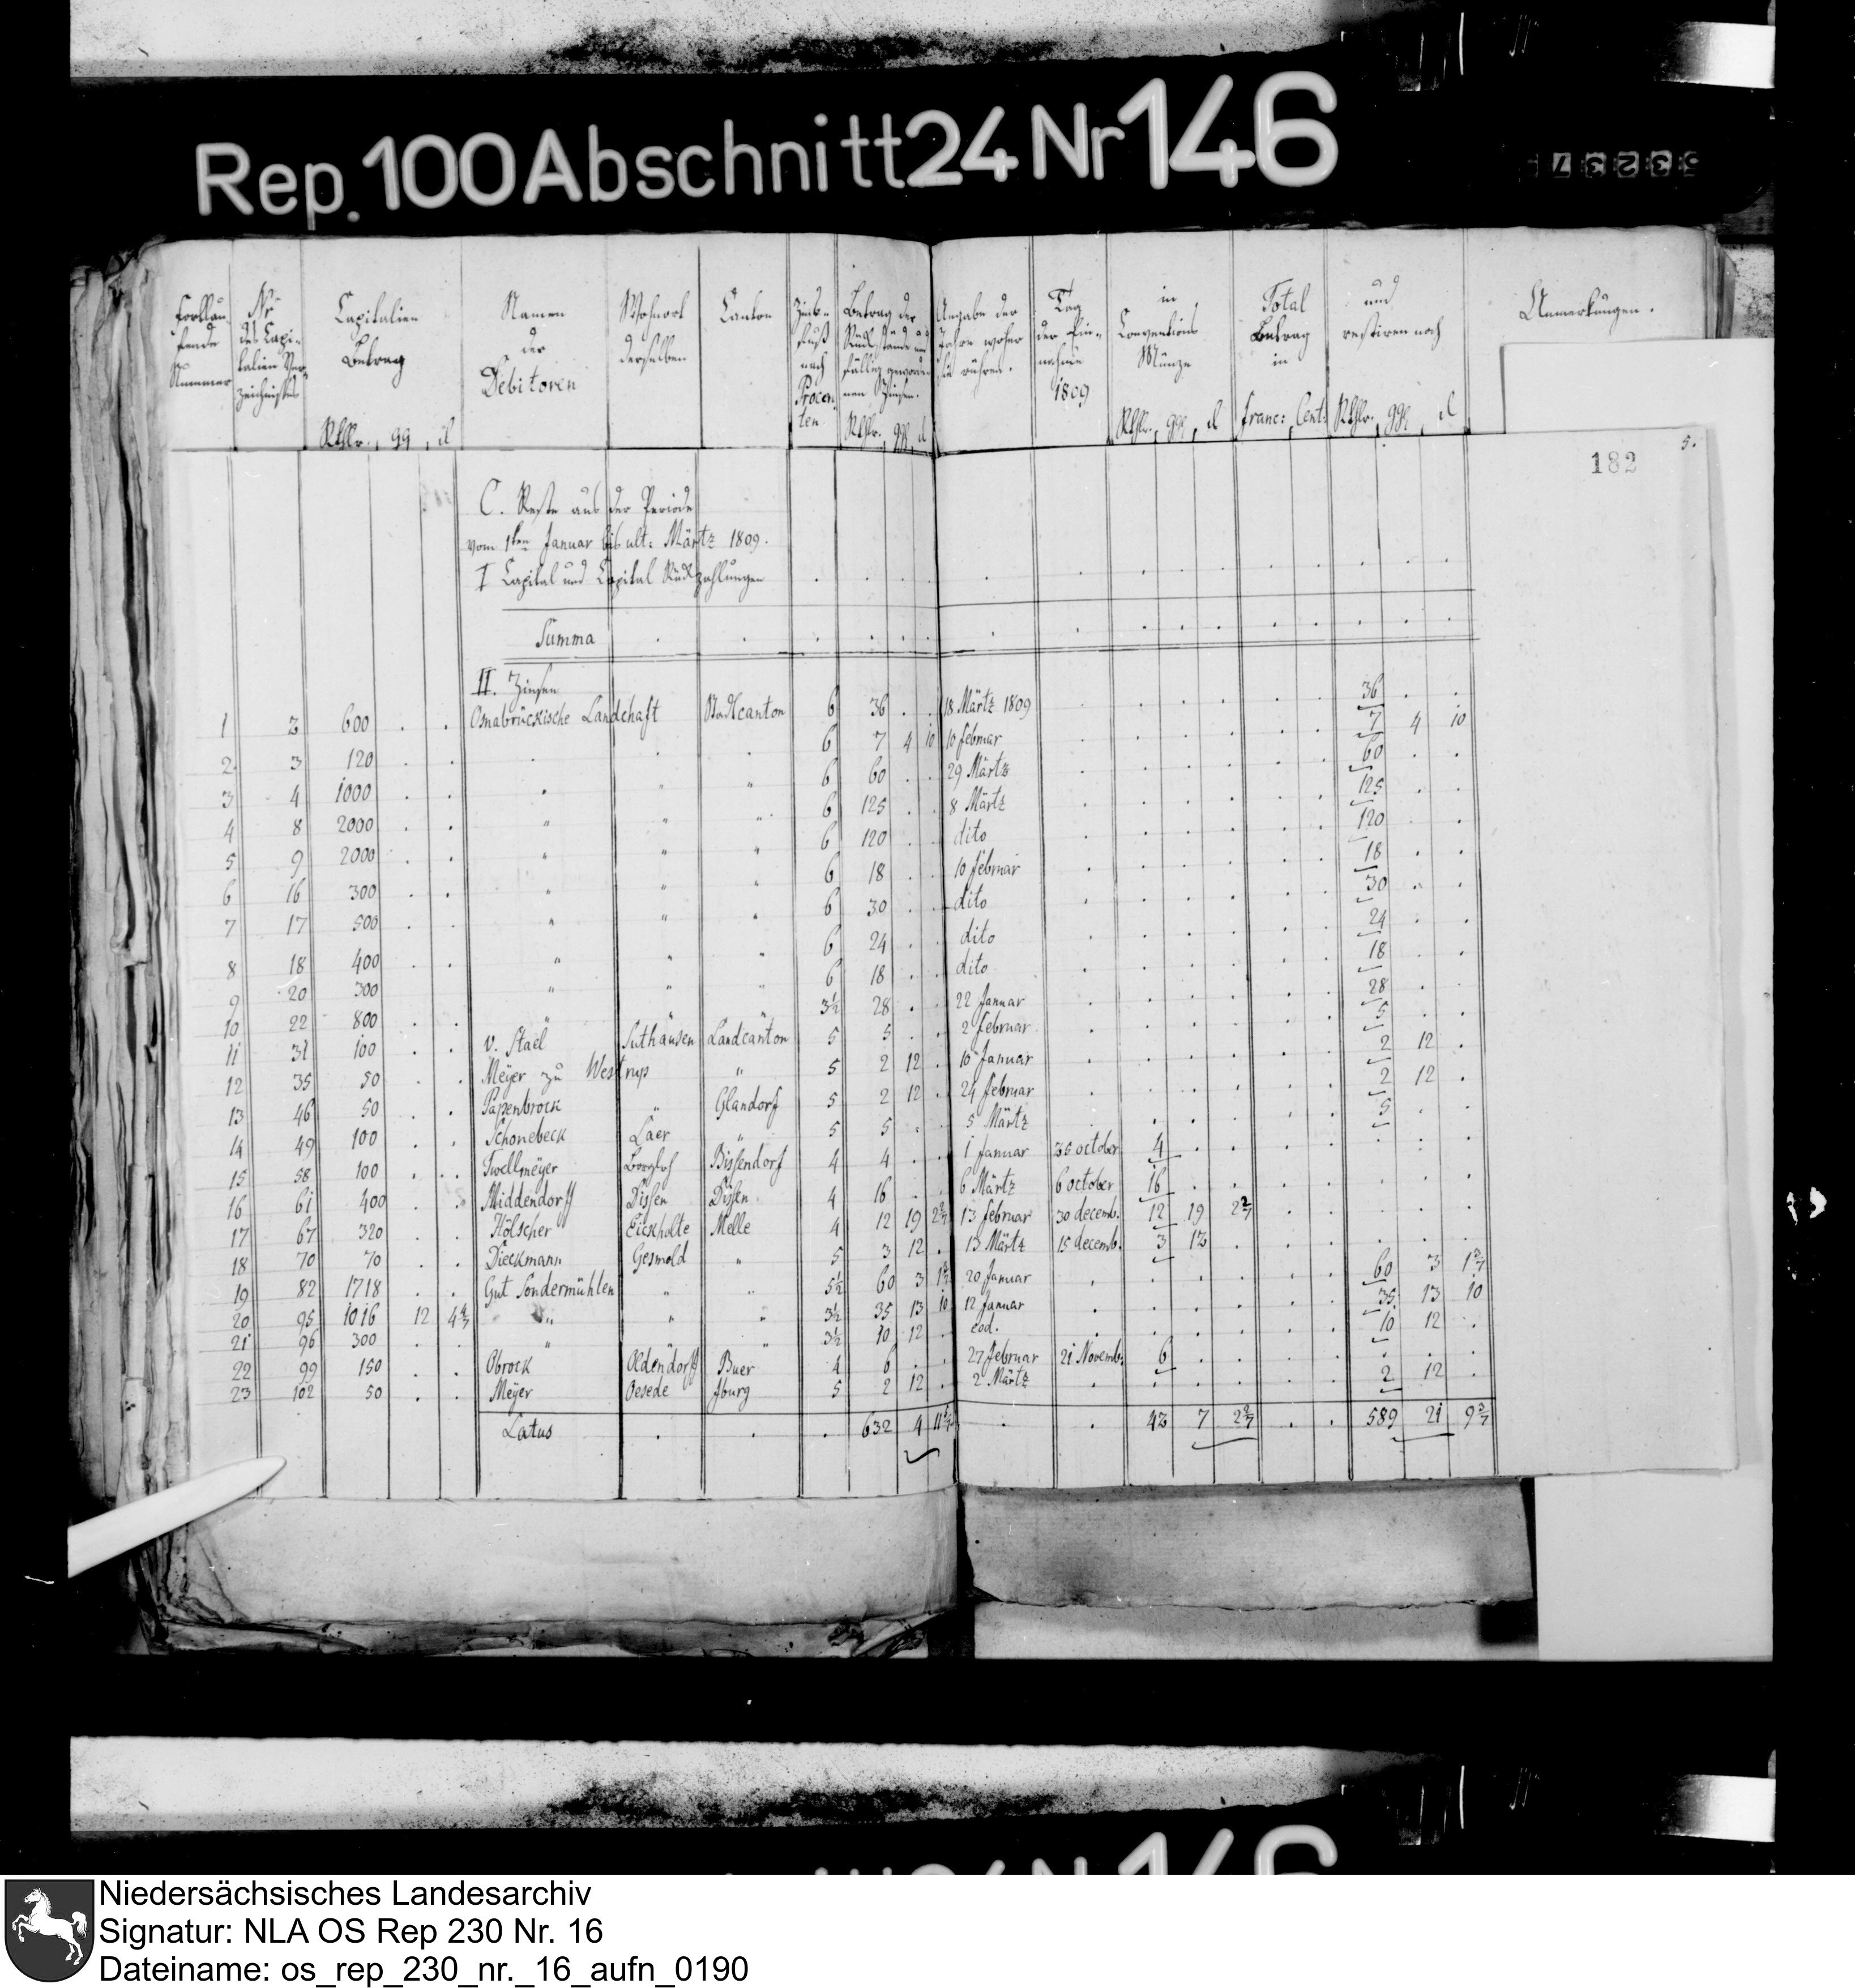 Rep. 100 Abschnitt 24 Nr 146
53237
Fortlau-
fende
Nummer
Nr.
des Capi-
talien Ver-
zeichnißes
Capitalien
Betrag
Rthlr. gg. d
Namen
der
Debitoren
Wohnort
derselben
Canton
Zins-
fuß
nach
Procen-
ten
Betrag der
Rückstände und
fällig geworde-
nen Zinsen.
Rthlr. ggl. d
Angabe der
Jahre woher
sie rühren.
Tag
der Ein-
nahme
1809
in
Conventions
Münze
Rthlr. ggl. d
Total
Betrag
in
franc: Cent:
und
restiren noch
Rthlr. ggl. d
Anmerkungen.
5.
182
C. Reste aus der Periode
vom 1ten Januar bis ult: Märtz 1809.
I Capital und Capital Rückzahlungen . . . . . . . . . . . . . .
Summa . . . . . . . . . . . . . . . .
II. Zinsen
1 3 600 . . Osnabrückische Landchaft Stadtcanton 6 36 . . 18 Märtz 1809 . . . . . . 36 . .
2 3 120 . . . . . 6 7 4 10 10 februar . . . . . . 7 4 10
3 4 1000 . . " " " 6 60 . . 29 Märtz . . . . . . 60 . .
4 8 2000 . . " " " 6 125 . . 8 Märtz . . . . . . 125 . .
5 9 2000 . . " " " 6 120 . . dito . . . . . . 120 . .
6 16 300 . . " " " 6 18 . . 10 februar . . . . . . 18 . .
7 17 500 . . " " " 6 30 . . dito . . . . . . 30 . .
8 18 400 . . " " " 6 24 . . dito . . . . . . 24 . .
9 20 300 . . " " " 6 18 . . dito . . . . . . 18 . .
10 22 800 . . " " " 3½ 28 . . 22 Januar . . . . . . 28 . .
11 31 100 . . v. Stael Suthausen Landcanton 5 5 . . 2 februar . . . . . . 5 . .
12 35 50 . . Meyer zu Westrup " 5 2 12 . 10 Januar . . . . . . 2 12 .
13 46 50 . . Papenbrock " Glandorf 5 2 12 . 24 februar . . . . . . 2 12 .
14 49 100 . . Schonebeck Laer " 5 5 . . 5 Märtz . . . . . . 5 . .
15 58 100 . . Twellmeyer Borgloh Bissendorf 4 4 . . 1 Januar 30 october 4 . . . . . . .
16 61 400 . . Middendorff Dissen Dissen 4 16 . . 6 Märtz 6 october 16 . . . . . . .
17 67 320 . . Hölscher Eickholte Melle 4 12 19 2 2/7 13 februar 30 decemb. 12 19 2 2/7 . . . . .
18 70 70 . . Dieckmann Gesmold " 5 3 12 . 13 Märtz 15 decemb. 3 12 . . . . . .
19 82 1718 . . Gut Sondermühlen " " 5½ 60 3 1 3/7 20 Januar . . . . . . 60 3 1 3/7
20 95 1016 12 4 4/7 " " " 3½ 35 13 10 12 Januar . . . . . . 35 13 10
21 96 300 . . " " 3½ 10 12 . eod. . . . . . . 10 12 .
22 99 150 . . Obrock Oldendorff Buer 4 6 . . 27 februar 21 Novemb. 6 . . . . . . .
23 102 50 . . Meyer Oesede Iburg 5 2 12 . 2 Märtz . . . . . . 2 12 .
Latus . . . 632 4 11 5/7 . . 42 7 2 2/7 . . 589 21 9 3/7
Niedersächsisches Landesarchiv
Signatur: NLA OS Rep 230 Nr. 16
Dateiname: os_rep_230_nr._16_aufn_0190